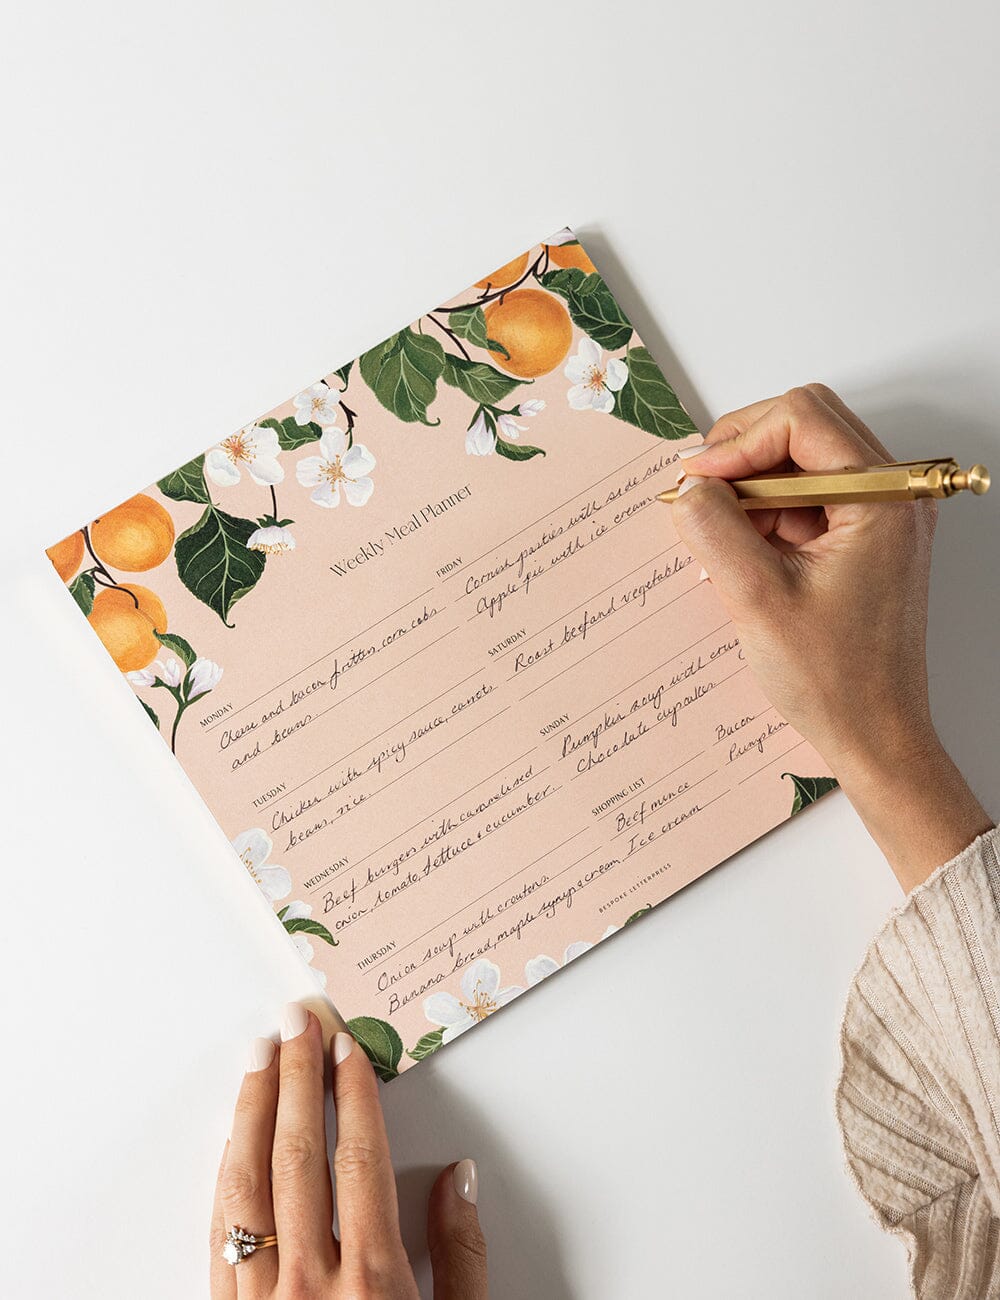 Weekly Meal Planner
MONDAY
Cheese and bacon fritters, corn cobs
and beans.
TUESDAY
Chicken with spicy sauce, carrots
beans, rice.
WEDNESDAY
Beef burgers with caramelised
onion, tomato, lettuce & cucumber.
THURSDAY
Onion soup with croutons.
Banana bread, maple syrup & cream
FRIDAY
Cornish pasties with side salad
Apple pie with ice cream
SATURDAY
Roast beef and vegetables
SUNDAY
Pumpkin soup with
Chocolate cupcakes.
SHOPPING LIST
Beef mince
Bacon
Ice cream
Pumpkin
BESPOKE LETTERPRESS